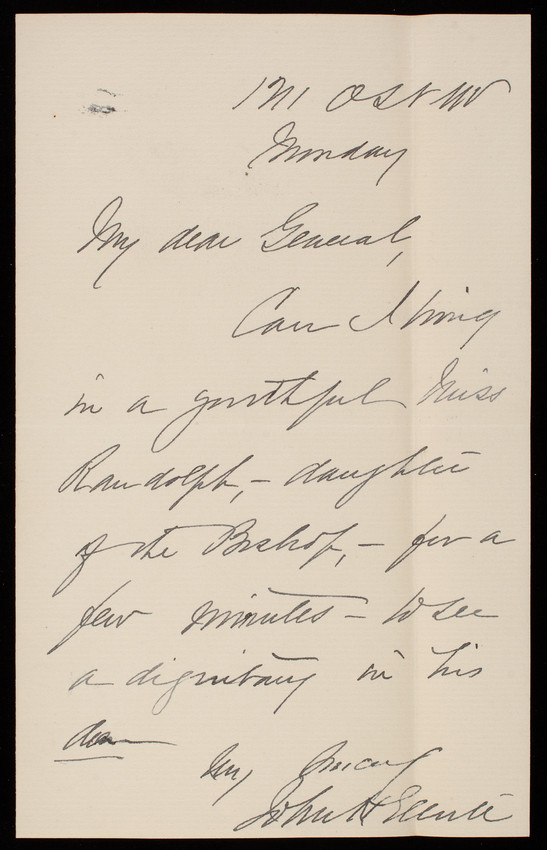 1711 O St NW
Monday
My dear General,
Can I bring
in a youthful Miss
Randolph, – daughter
of the Bishop, – for a
few minutes – to see
a dignitary in his
den
John H